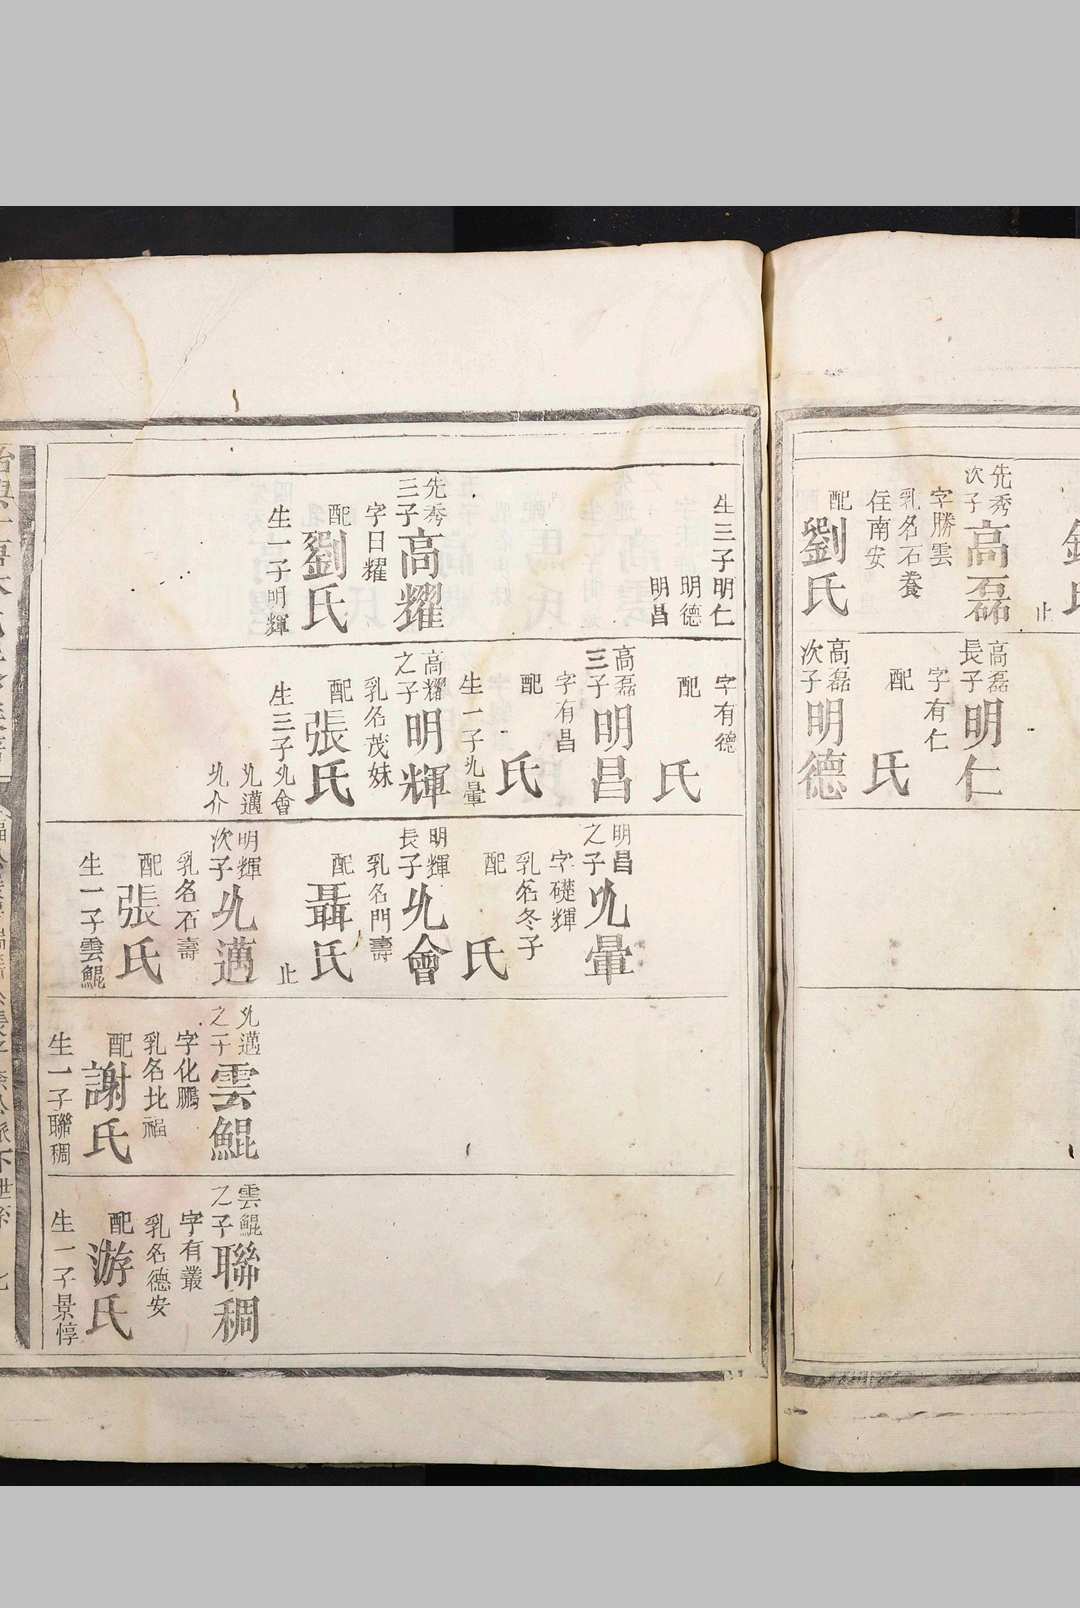 先秀
次子
高磊
字勝雲
乳名石養
住南安
配
劉氏
止
高磊
長子
明仁
字有仁
配
氏
高磊
次子
明德
生三子明仁
明德
明昌
先秀
三子
高耀
字日耀
配
劉氏
生一子明輝
字有德
配
氏
高磊
三子
明昌
字有昌
配
氏
生一子光暈
高耀
之子
明輝
乳名茂妹
配
張氏
生三子光會
光邁
光介
明昌
之子
光暈
字礎輝
乳名冬子
配
氏
明輝
長子
光會
乳名門壽
配
聶氏
止
明輝
次子
光邁
乳名石壽
配
張氏
生一子雲鯤
光邁
之子
雲鯤
字化鵬
乳名比福
配
謝氏
生一子聯稠
雲鯤
之子
聯稠
字有叢
乳名德安
配
游氏
生一子景惇